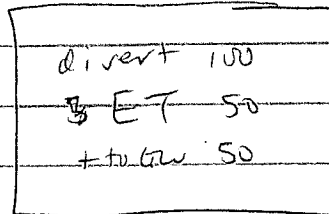 divert 100
ET 50
+ to GW 50